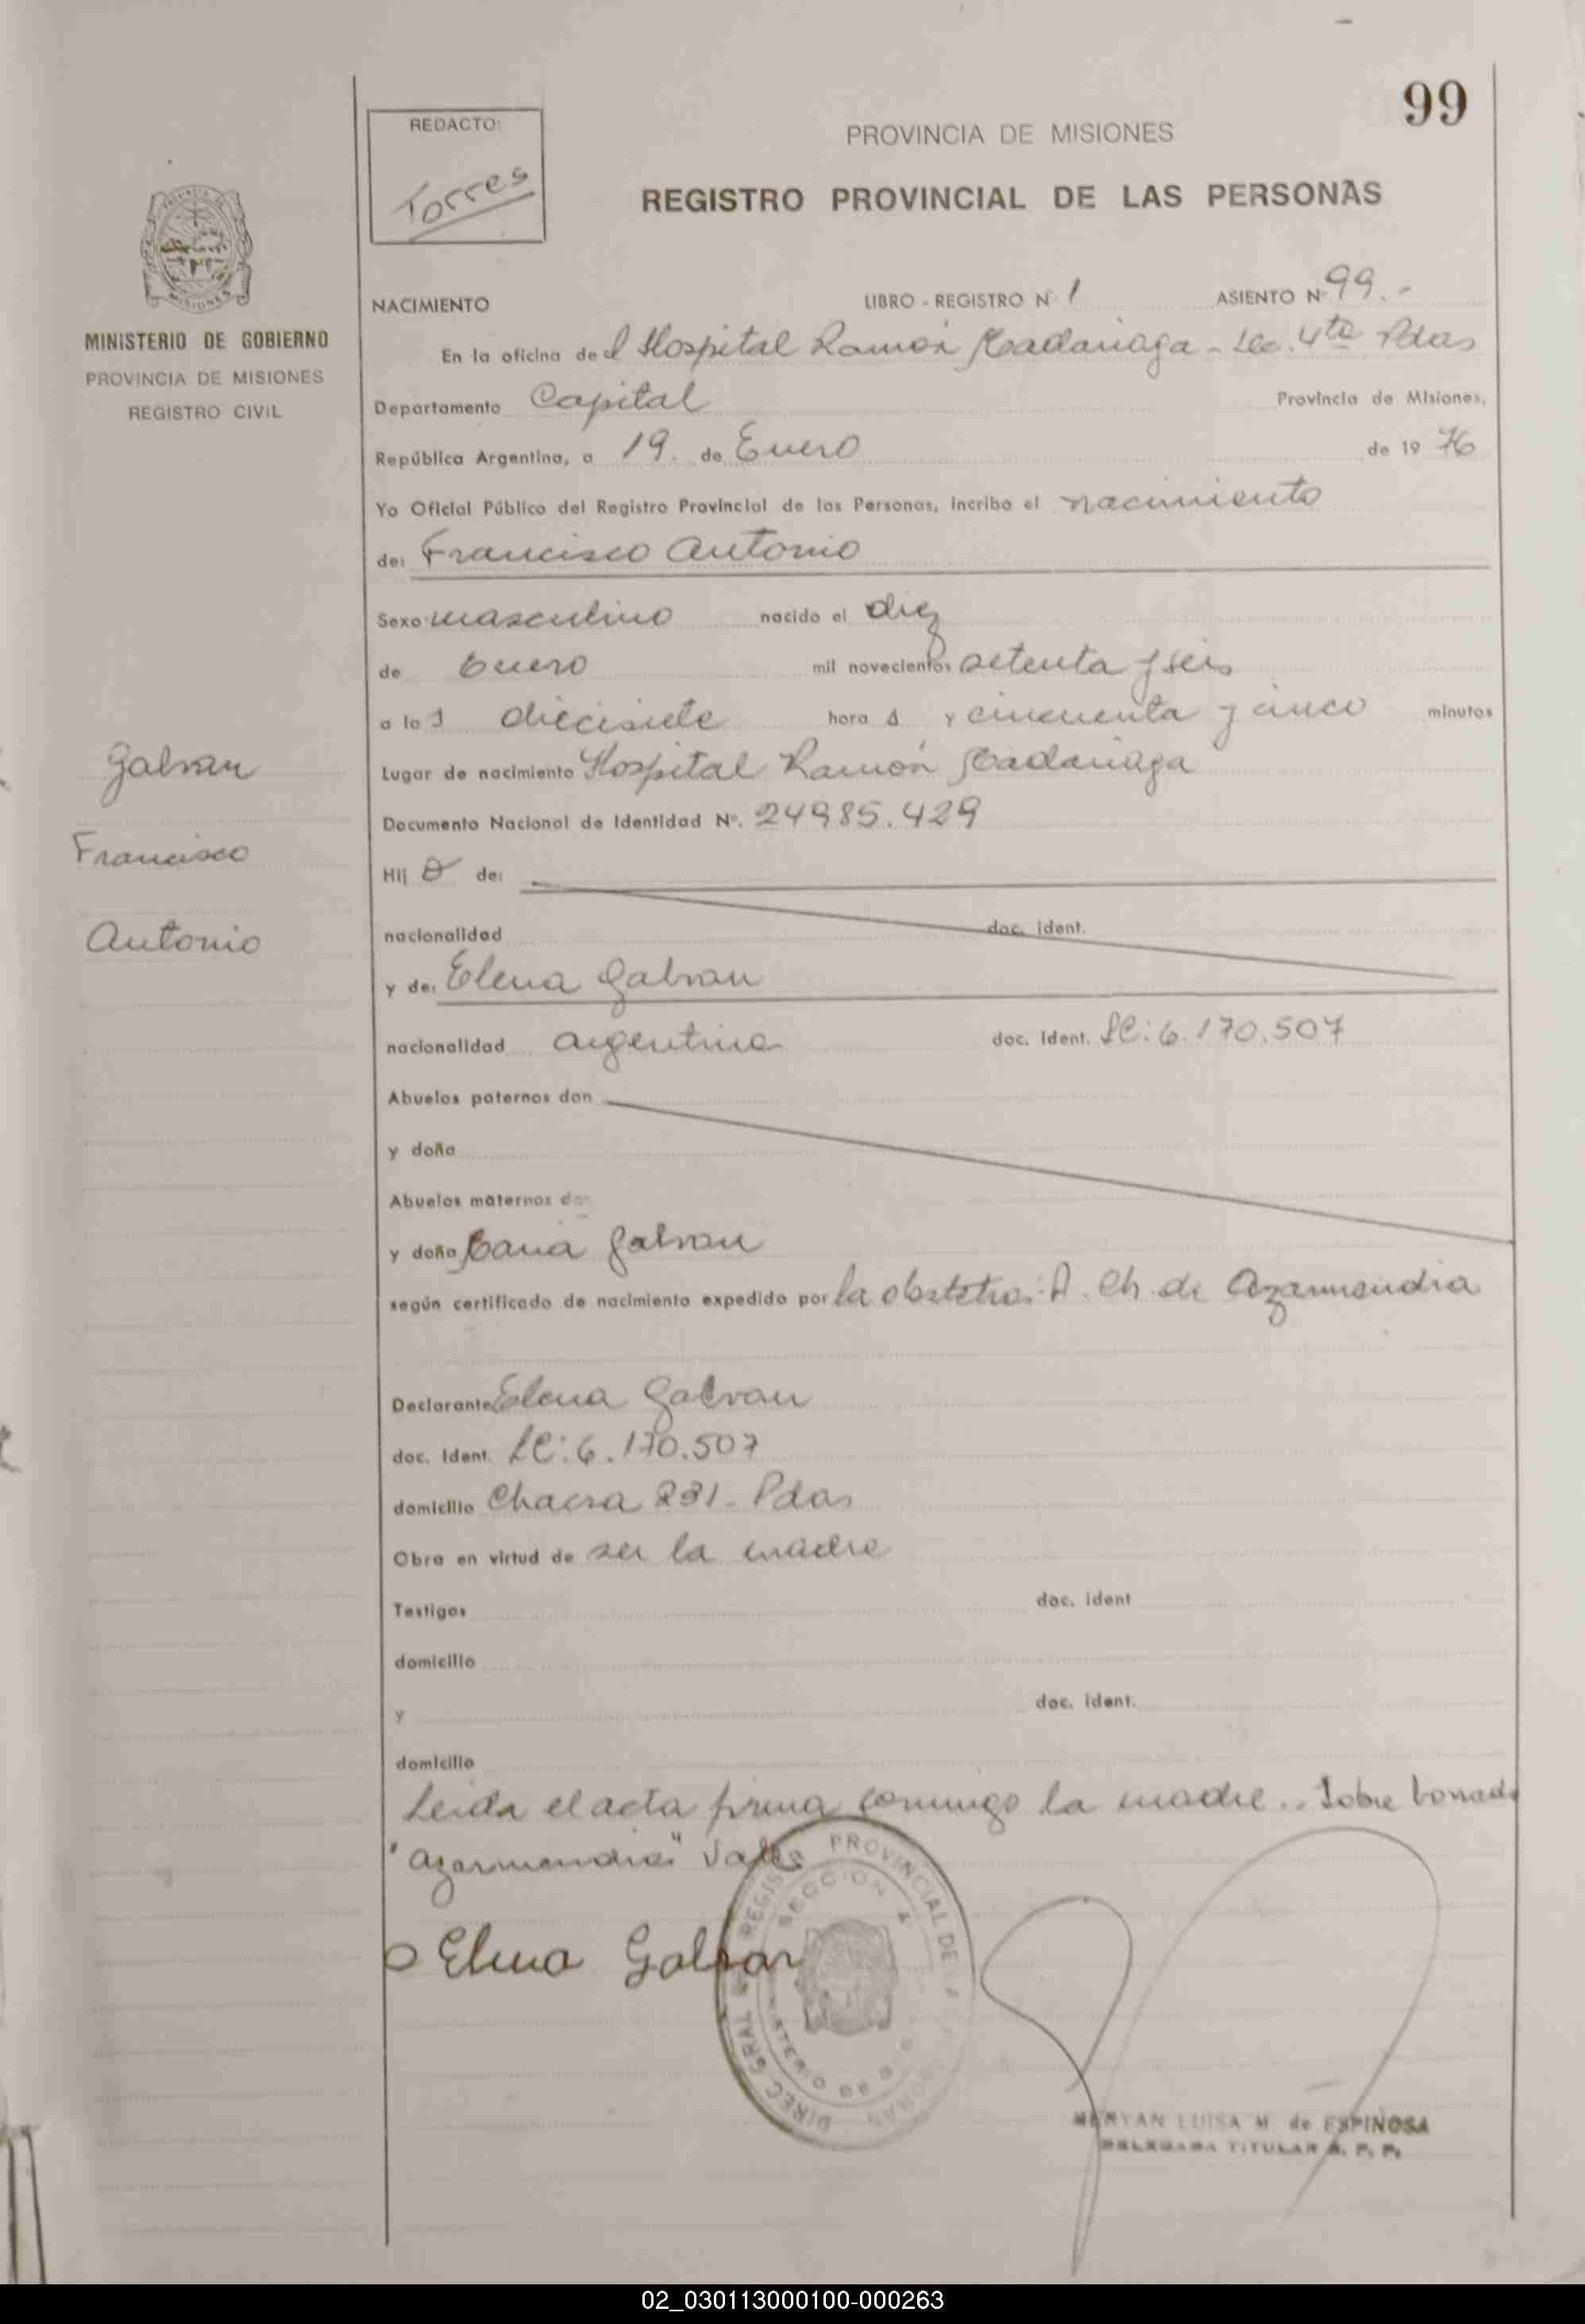 99
REDACTO:
Torres
PROVINCIA DE MISIONES
REGISTRO PROVINCIAL DE LAS PERSONAS
MISIONES
MINISTERIO DE GOBIERNO
PROVINCIA DE MISIONES
REGISTRO CIVIL
NACIMIENTO LIBRO - REGISTRO Nº 1 ASIENTO Nº 99.-
En la oficina del Hospital Ramón Madariaga - Sec. 4ta Pdas
Departamento Capital Provincia de Misiones,
República Argentina, a 19. de Enero de 1976
Yo Oficial Público del Registro Provincial de las Personas, incribo el nacimiento
de: Francisco Antonio
Sexo masculino nacido el diez
de Enero mil novecientos setenta y seis
a las diecisiete horas y cincuenta y cinco minutos
Lugar de nacimiento Hospital Ramón Madariaga
Documento Nacional de Identidad Nº. 24985.429
Galvan
Francisco
Antonio
Hijo de:
nacionalidad doc. ident.
y de: Elena Galvan
nacionalidad argentina doc. ident. LC: 6.170.507
Abuelos paternos don
y doña
Abuelos maternos don
y doña Galvan
según certificado de nacimiento expedido por la obstetra: A. Ch. de Azarmendia
Declarante Elena Galvan
doc. Ident. LC: 6.170.507
domicilio Chacra 231- Pdas
Obra en virtud de ser la madre
Testigos doc. ident
domicilio
y doc. ident.
domicilio
Leida el acta firma conmigo la madre.. Sobre borrado
"Azarmendia" Vale
Elena Galvan
DIREC GRAL REGISTRO PROVINCIAL DE
SECCION 4
MERYAN LUISA M. de ESPINOSA
DELEGADA TITULAR R. P. P.
02_030113000100-000263